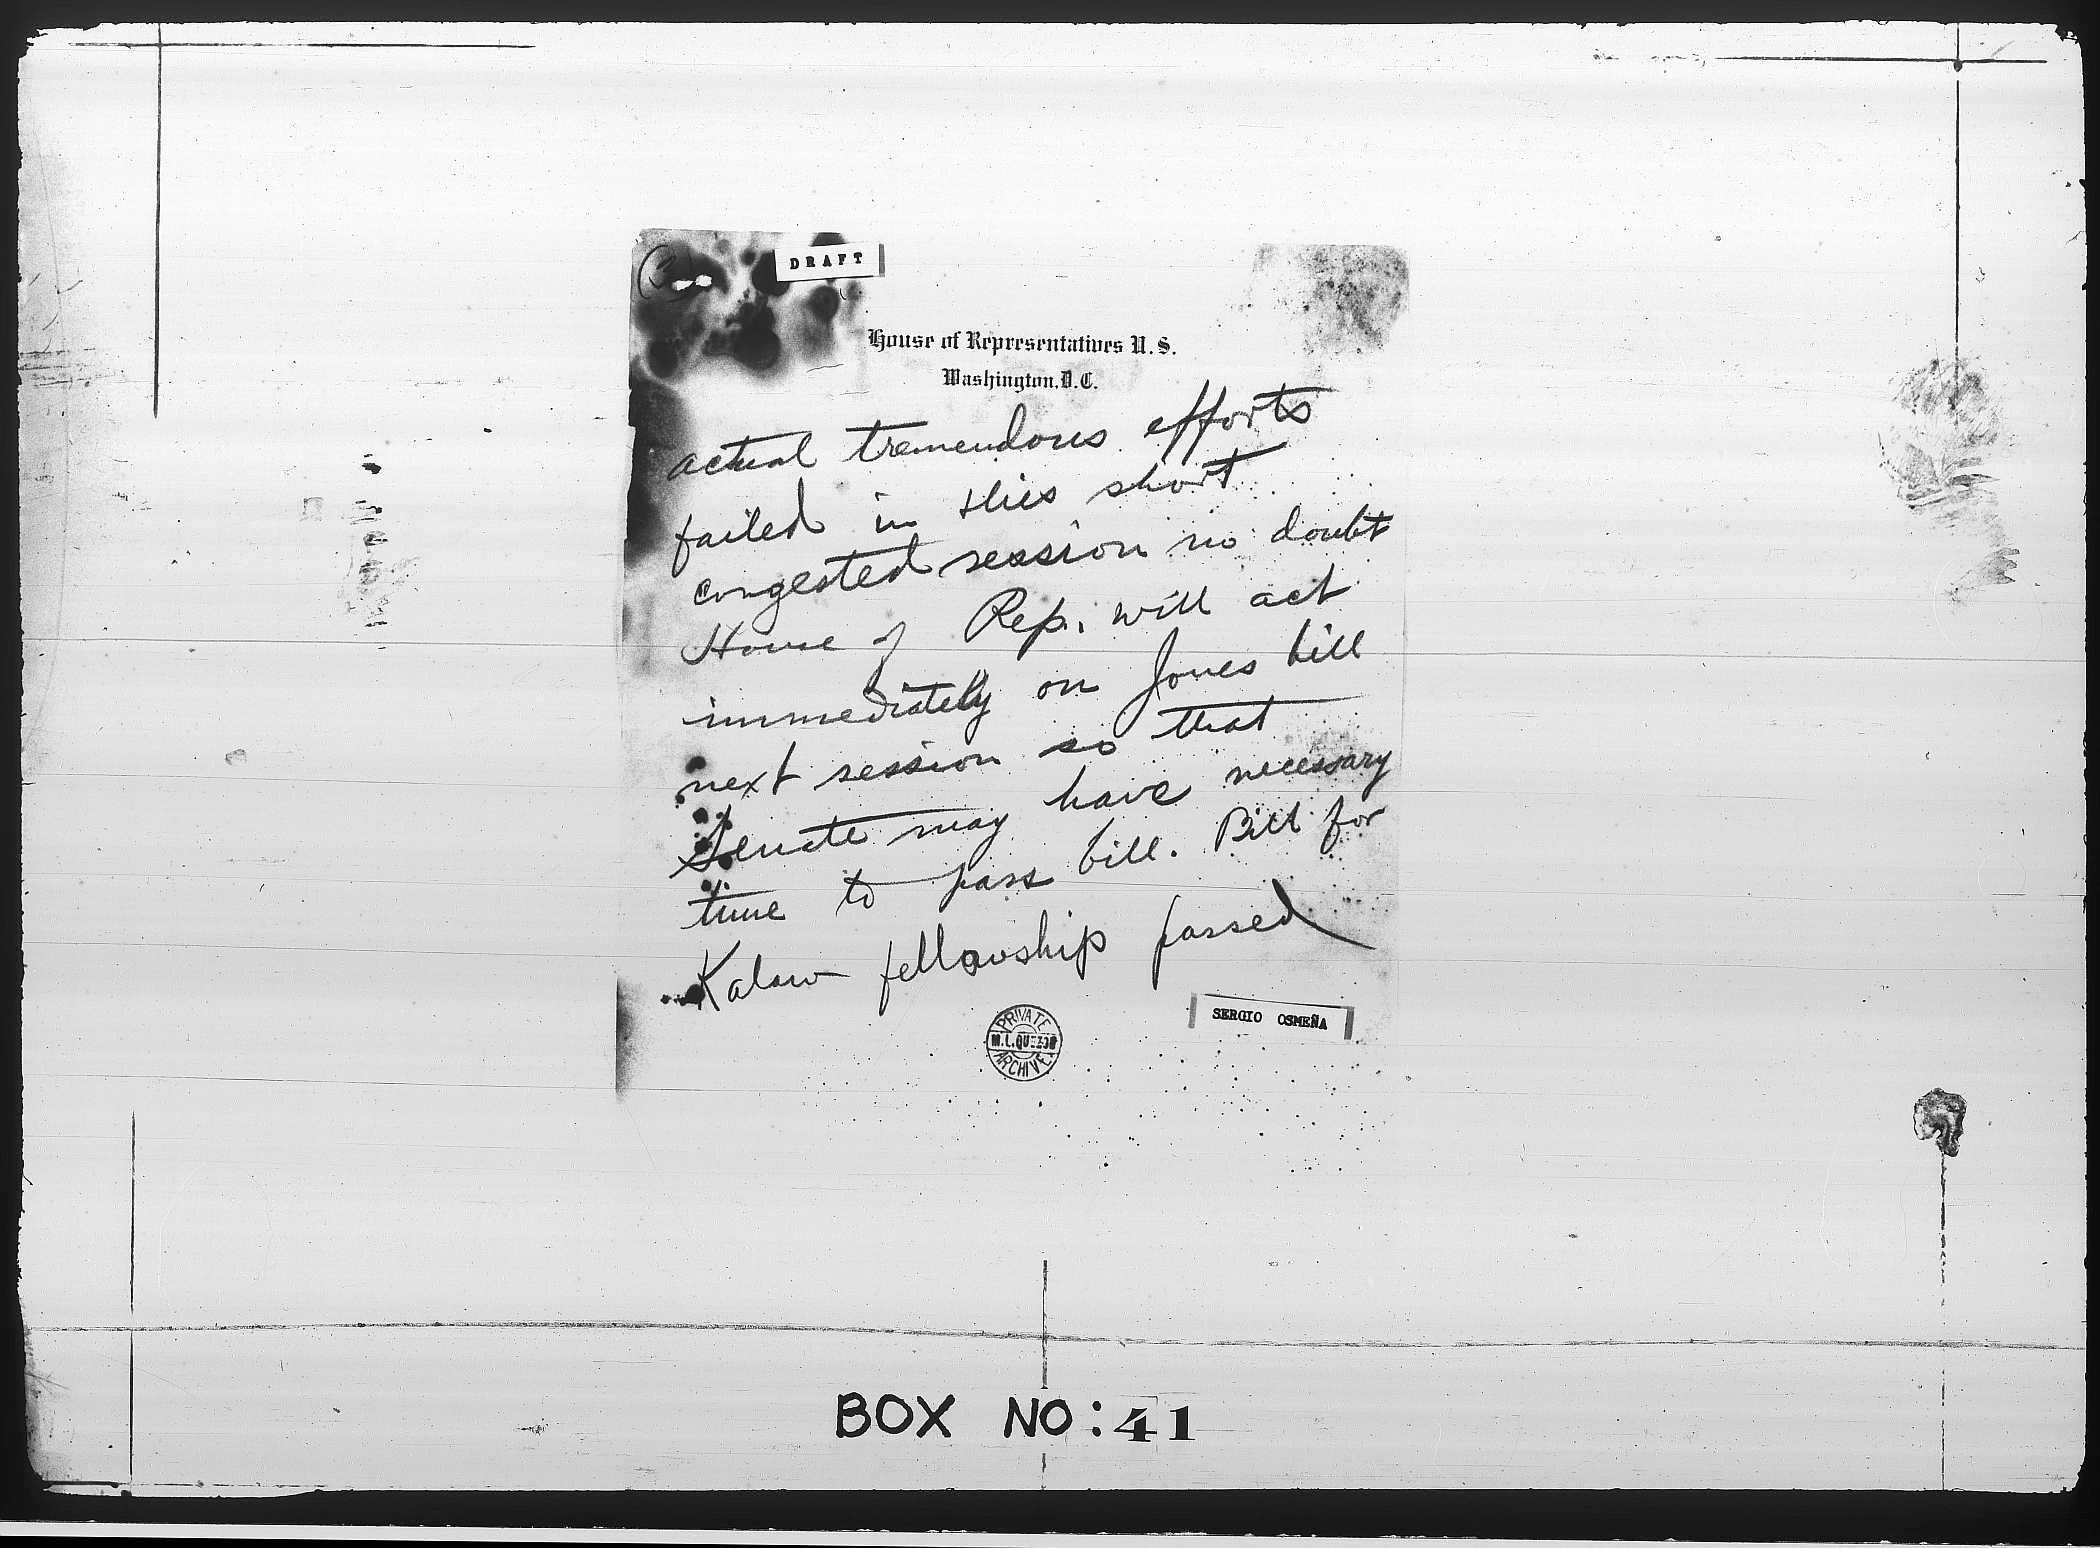 (3)
DRAFT
House of Representatives U.S.
Washington, D.C.
actual tremendous efforts
failed in this short
congested session no doubt
House of Rep. will act
immediately on Jones bill
next session so that
Senate may have necessary
time to pass bill. Bill for
Kalaw fellowship passed
SERGIO OSMEÑA
PRIVATE
M.L.QUEZON
ARCHIVE
BOX NO: 41